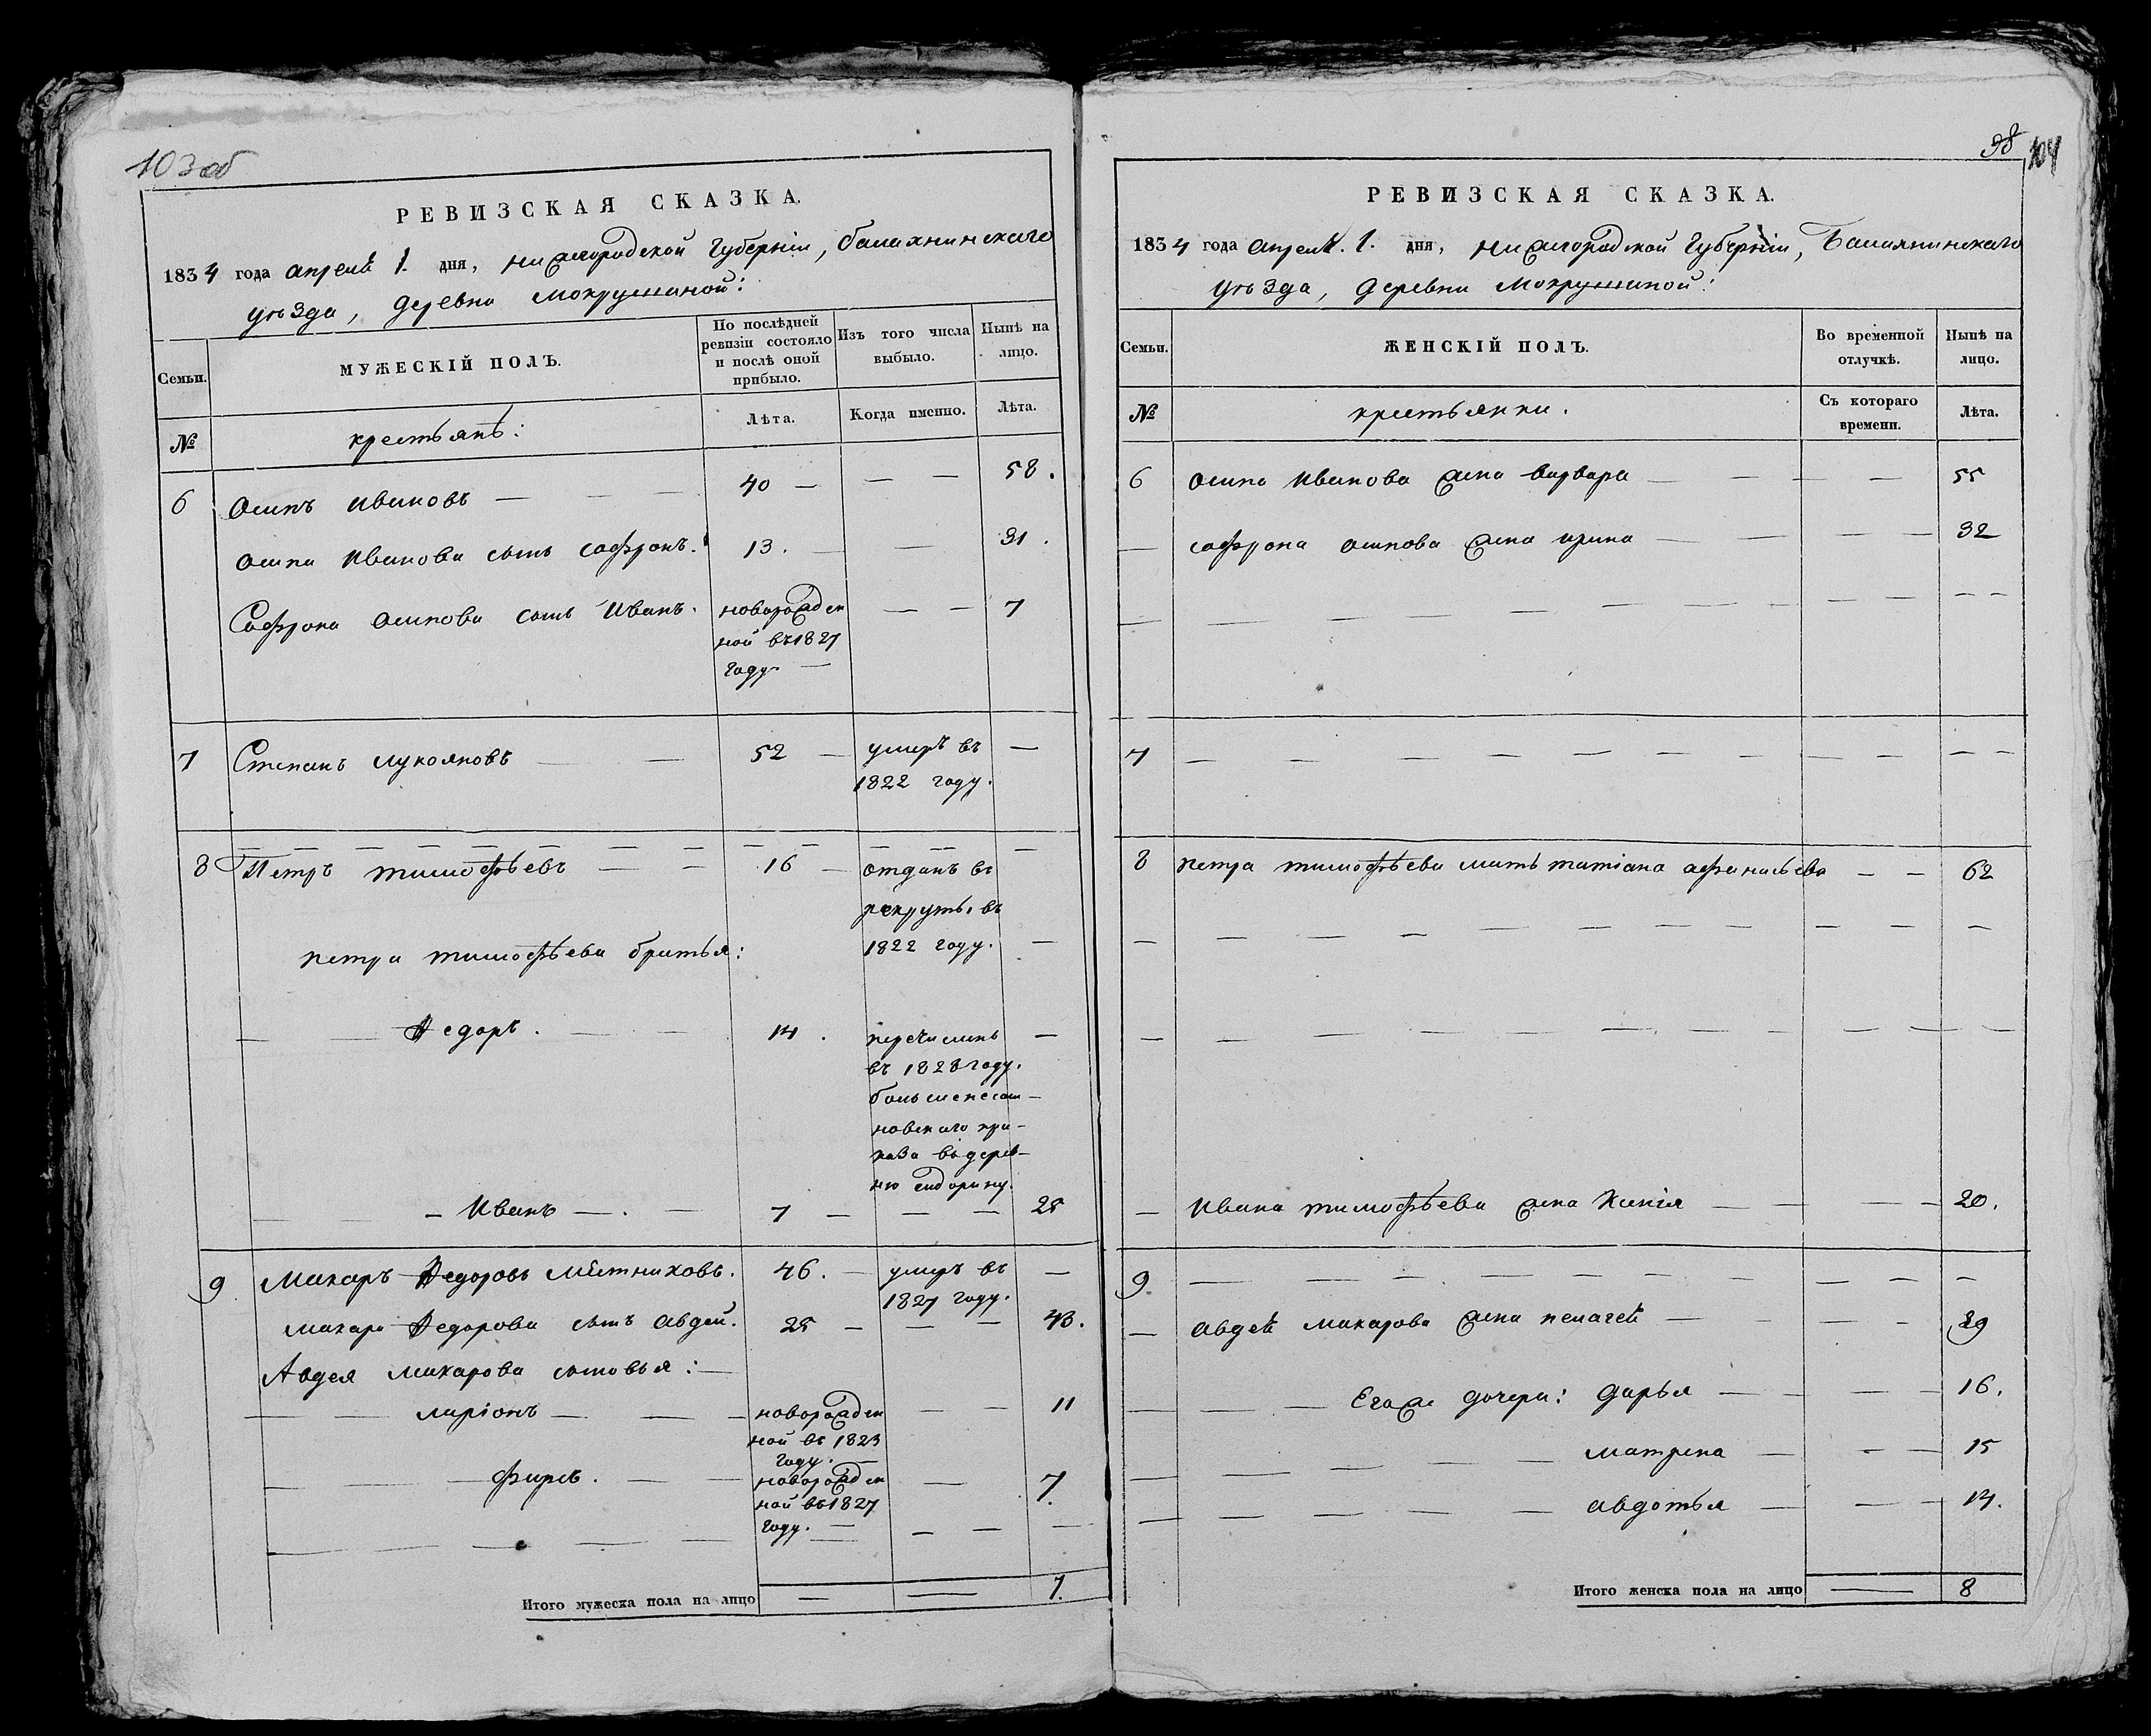 103 об
РЕВИЗСКАЯ СКАЗКА.
1834 года апреля 1. дня, нижегородской губернiи, балахнинскаго
уѣзда, деревни мокрушиной:
Семьи.
МУЖЕСКIЙ ПОЛЪ.
По послѣдней ревизiи состояло и послѣ оной прибыло.
Изъ того числа выбыло.
Нынѣ на лицо.
№
крестьянъ:
Лѣта.
Когда именно.
Лѣта.
6 осипъ ивановъ — — — 40 — — — 58.
осипа иванова сынъ софронъ. 13. — — 31.
Софрона осипова сынъ иванъ. новорожден — — 7
ной въ 1827
году. —
7 Степанъ лукояновъ — — 52 — умеръ въ —
1822 году.
8 Петръ тимофѣевъ — — 16 — отданъ въ
рекруты въ
петра тимофѣева братья: 1822 году. —
— — Федоръ. — — 14. перечисленъ —
въ 1828 году.
новскаго при-
каза въ дерев-
— — — иванъ — . — 7 — — — 25
9 макаръ Федоровъ 46. — умеръ въ —
1827 году.
макара Федорова сынъ авдей. 25 — — — 43.
Авдея макарова сыновья: —
— — ларiонъ — — — новорожден — — 11
ной въ 1823
году. —
— — фирсъ. — — новорожден — 7.
ной въ 1827
году. — — — —
Итого мужеска пола на лицо — — 7.
98 104
РЕВИЗСКАЯ СКАЗКА.
1834 года апреля. 1. дня, нижегородской губернiи, Балахнинскаго
уѣзда, деревни мокрушиной:
Семьи.
ЖЕНСКIЙ ПОЛЪ.
Во временной отлучкѣ.
Нынѣ на лицо.
№
крестьянки.
Съ котораго времени.
Лѣта.
6 осипа иванова жена варвара — — — — 55
— софрона осипова жена ирина — — — — 32
7 — — — — — — — — — —
8 петра тимофѣева мать татiана афанасьева — — 62
— ивана тимофѣева жена ксенiя — — — — 20.
9 — — — — — — — — — —
— авдея макарова жена пелагея — — — — 39
— — — Егоже дочери: дарья — — — — 16.
матрена — — — 15
авдотья — — — 14.
Итого женска пола на лицо — 8